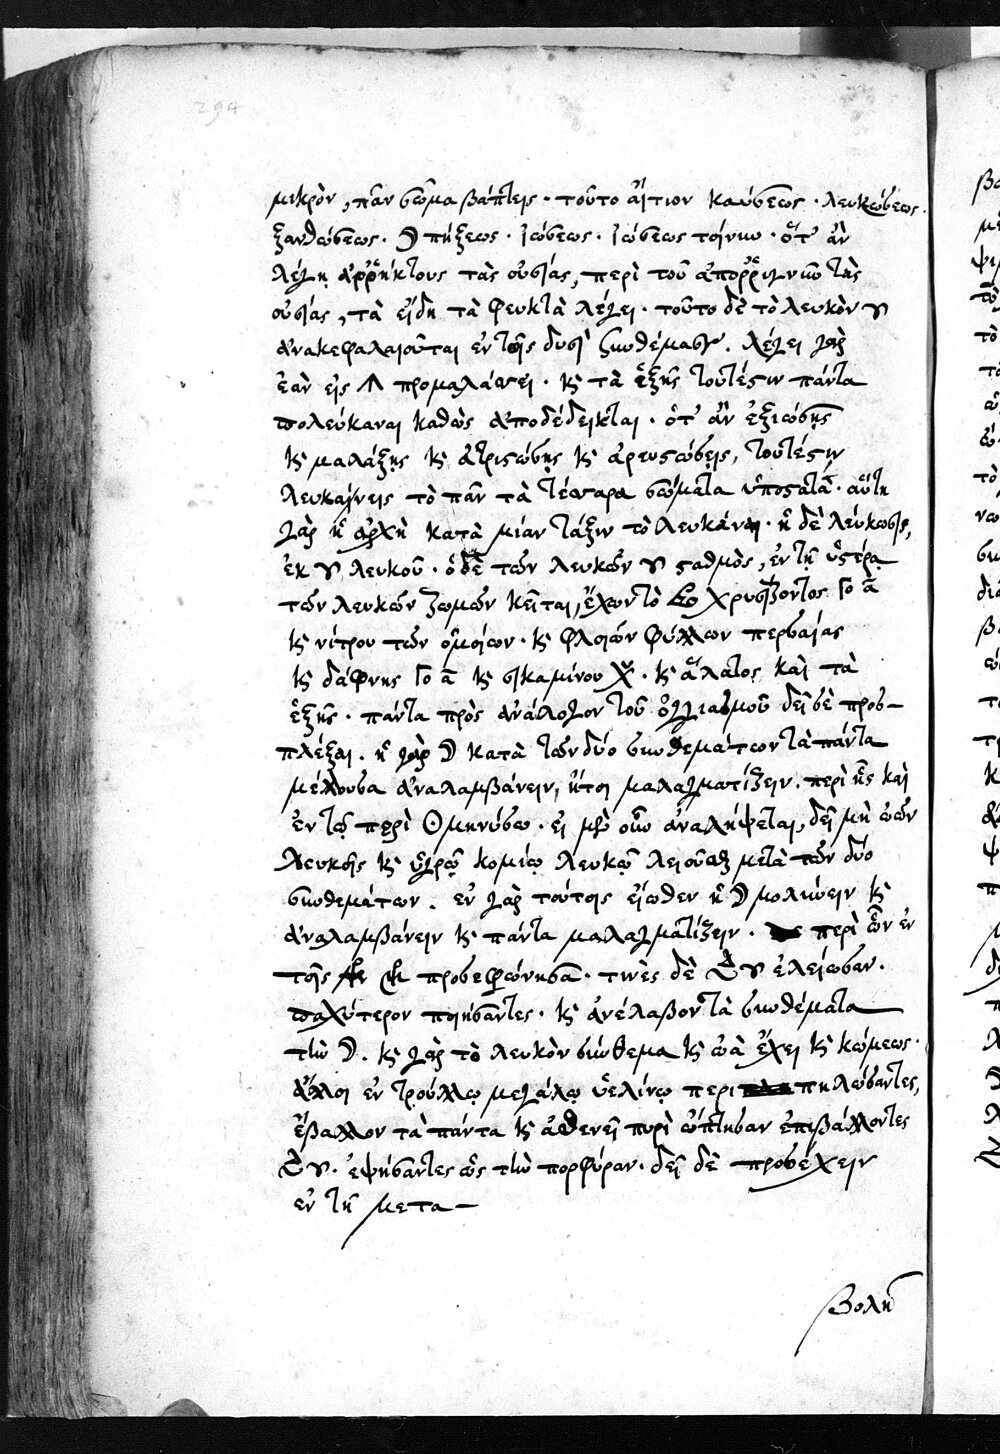 294
μικρὸν, πᾶν σῶμα βάπτεις· τοῦτο αἴτιον καύσεως· λευκώσεως·
ξανθώσεως· ☽ πήξεως· ἰώσεως· ἰώσεως τοίνυν· ὅτ' ἂν
λέγῃ ἀρρήκτους τὰς οὐσίας, περὶ τοῦ ἀπορριν τῆς
οὐσίας, τὰ εἴδη τὰ φευκτὰ λέγει· τοῦτο δὲ τὸ λευκὸν
ἀνακεφαλαιοῦται ἐν τοῖς δυσὶ συνθέμασιν. λέγει γὰρ
ἐὰν εἰς προμαλάσσει· κ τὰ ἑξῆς τουτέστιν πάντα
πολεύκαναι καθὼς ἀποδέδεικται· ὅτ' ἂν ἐξιώσῃς
κ μαλάξῃς κ ἀτρισώσῃς κ ἀρευσώσῃς, τουτέστιν
λευκαίνεις τὸ πᾶν τὰ τέσσαρα σώματα ὑποστατὰ· αὕτη
γὰρ ἡ ἀρχὴ κατὰ μίαν τάξιν τὸ λευκάναι· ἡ δὲ λεύκωσις,
ἐκ λευκοῦ· ὁ δὲ τῶν λευκῶν σταθμὸς, ἐν τῇ ὑστέρᾳ
τῶν λευκῶν ζωμῶν κεῖται, ἔχων τὸ χρυσίζοντος Γο α
κ νίτρου τῶν ὁμοίων· κ φλοιῶν φύλλων περσαίας
κ δάφνης Γο α κ σικαμίνου χ· κ ἅλατος καὶ τὰ
ἑξῆς· πάντα πρὸς ἀνάλογον τοῦ ὀγγιασμοῦ δεῖ σὲ προσ-
πλέξαι. ἡ γὰρ ☽ κατὰ τῶν δύο συνθεμάτων τὰ πάντα
μέλλουσα ἀναλαμβάνειν, ἤτοι μαλαγματίζειν. περὶ ἧς καὶ
ἐν τῷ περὶ Θ μηνύσω· εἰ μὲν οὖν ἀναλήψεται, δεῖ μὴ ὠῶν
λευκοῖς κ ὑγρῷ κομίῳ λευκῷ λειοῦσθαι μετὰ τῶν δύο
συνθεμάτων. ἐν γὰρ τούτοις εἴωθεν ἡ ☽ μολύνειν κ
ἀναλαμβάνειν κ πάντα μαλαγματίζειν· περὶ ὧν ἐν
τοῖς προσεφώνησα· τινὲς δὲ ἐλείωσαν·
παχύτερον ποιήσαντες· κ ἀνέλαβον τὰ συνθέματα
τὴν ☽. κ γὰρ τὸ λευκὸν σύνθεμα κ ὠὰ ἔχει κ κώμεως·
ἄλλοι ἐν τρούλλῳ μεγάλῳ ὑελίνῳ περι πηλώσαντες,
ἔβαλλον τὰ πάντα κ ἀσθενεῖ πυρὶ ὤπτησαν ἐπιβάλλοντες
ἑψήσαντες ὡς τὴν πορφύραν· δεῖ δὲ προσέχειν
ἐν τῇ μετα-
βολῇ